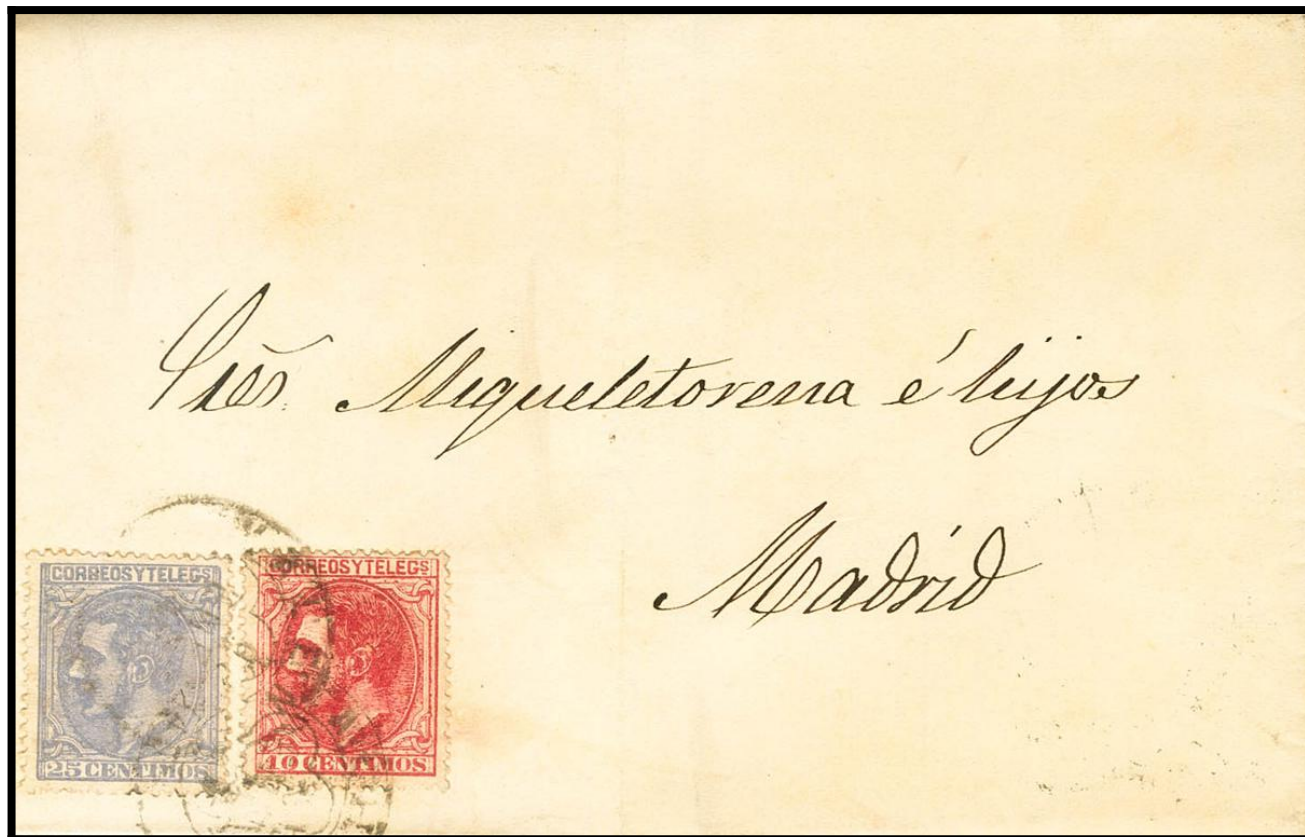 Sres. Migueletorena é hijos
Madrid
CORREOS Y TELEGS
25 CENTIMOS
CORREOS Y TELEGS
10 CENTIMOS